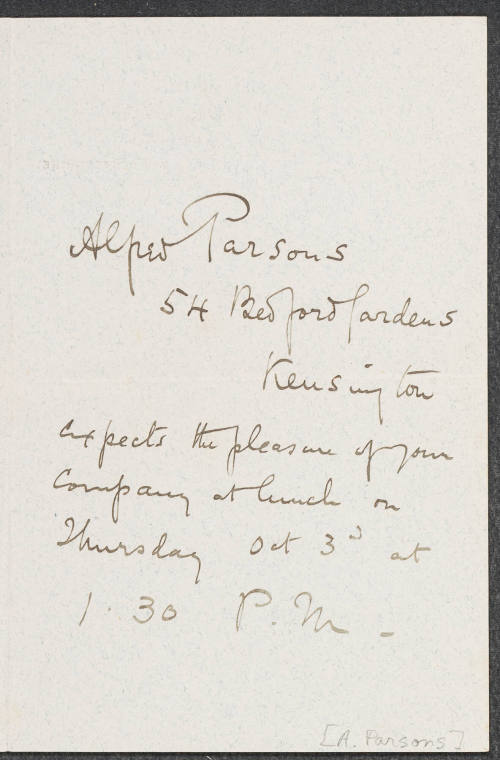 Alfred Parsons
54 Bedford Gardens
Kensington
expects the pleasure of your
Company at lunch on
Thursday Oct 3d at
1.30 P.M -
[A. Parsons]